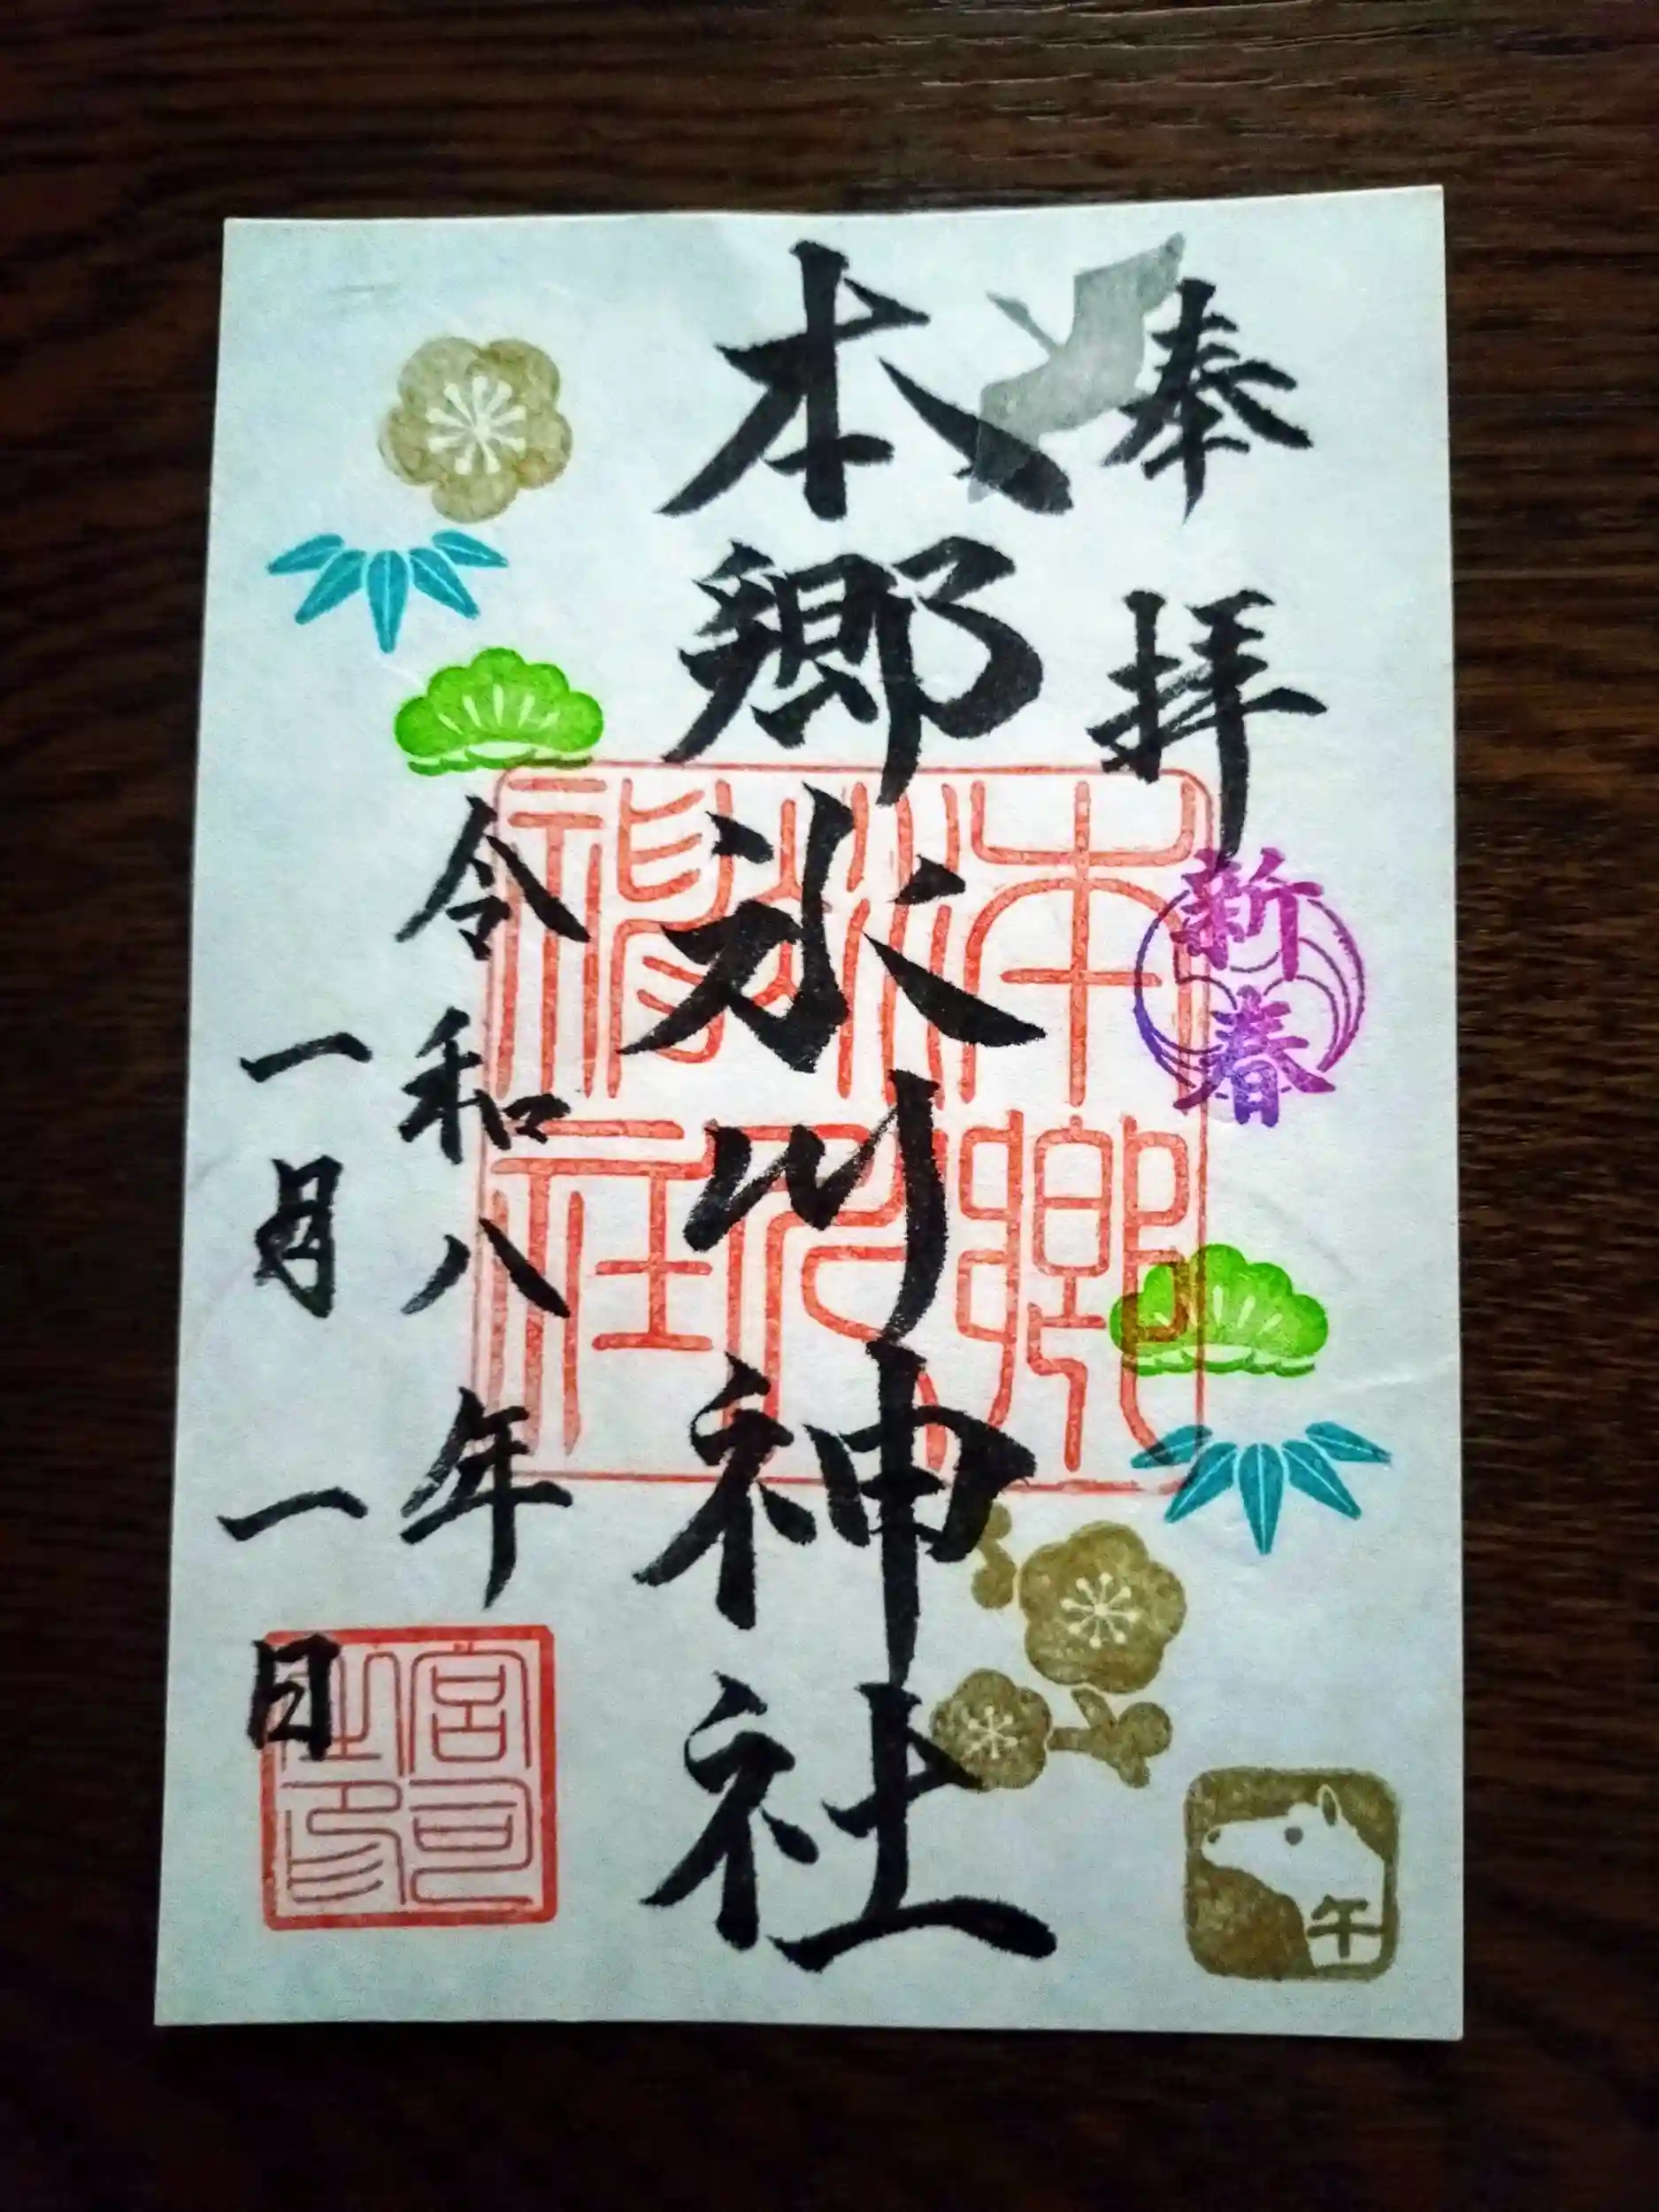 奉拝
新春
午
本郷氷川神社
本郷
氷川
神社
令和八年
一月一日
宮司
之印